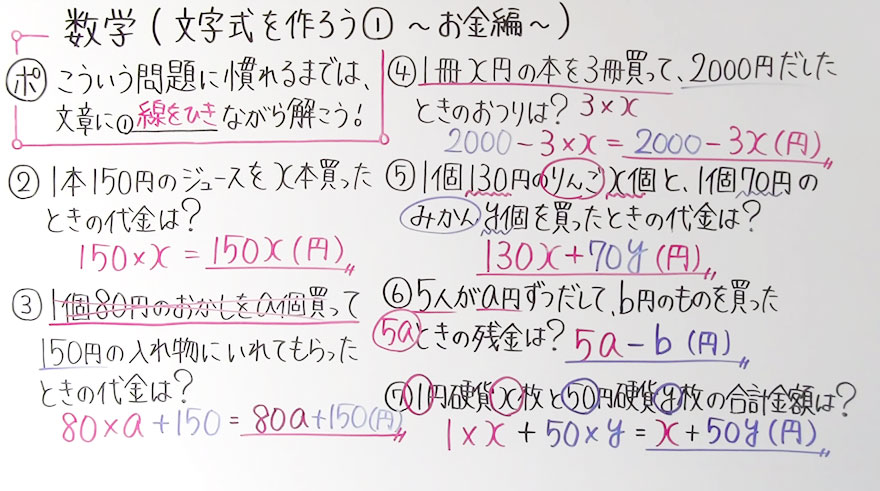 数学(文字式を作ろう① ~お金編~)
ポ こういう問題に慣れるまでは、
文章に①線をひきながら解こう!
② 1本150円のジュースをx本買った
ときの代金は?
150×x = 150x(円)
③ 1個80円のおかしをa個買って
150円の入れ物にいれてもらった
ときの代金は?
80×a+150 = 80a+150(円)
④ 1冊x円の本を3冊買って、2000円だした
ときのおつりは? 3×x
2000-3×x = 2000-3x(円)
⑤ 1個130円のりんごx個と、1個70円の
みかんy個を買ったときの代金は?
130x+70y(円)
⑥ 5人がa円ずつだして、b円のものを買った
5a ときの残金は? 5a-b (円)
⑦ 1円硬貨x枚と50円硬貨y枚の合計金額は?
1×x + 50×y = x+50y(円)